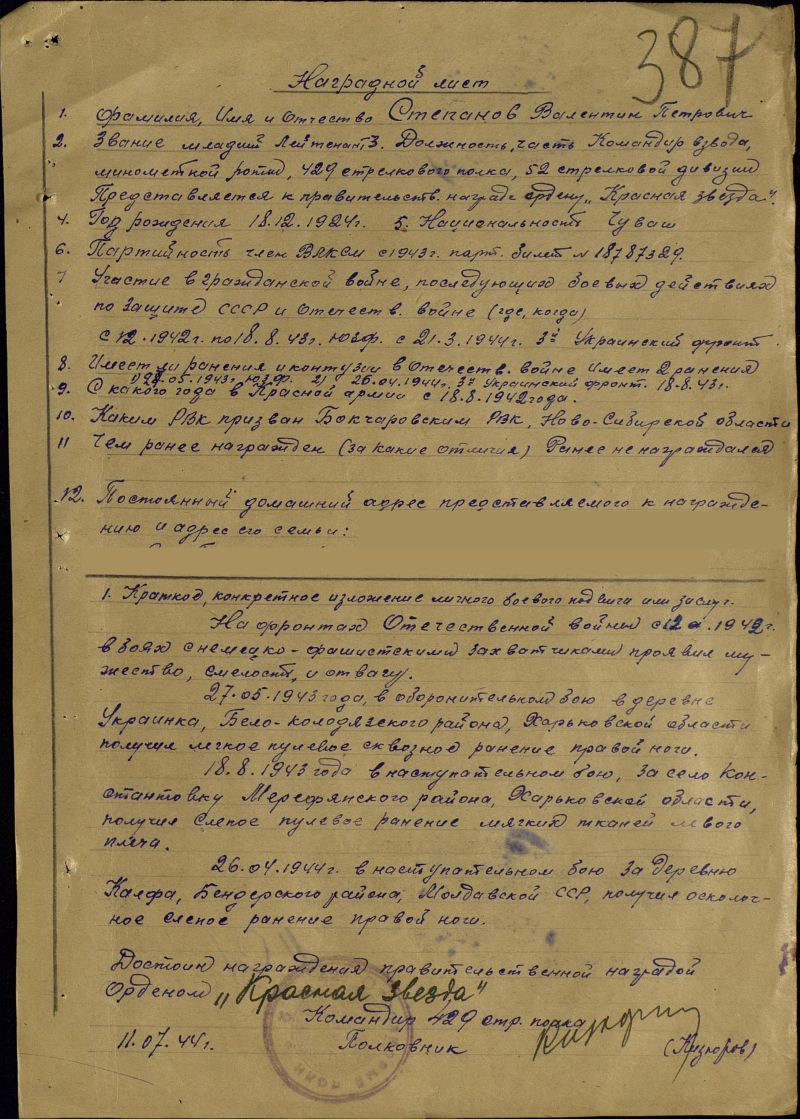 387
Наградной лист
1. Фамилия, Имя и Отчество Степанов Валентин Петрович
2. Звание младший Лейтенант 3. Должность, часть Командир взвода,
минометной роты, 429 стрелкового полка, 52 стрелковой дивизии
Представляется к правительств. награде ордену „Красная звезда".
4. Год рождения 18.12.1924г. 5. Национальность Чуваш
6. Партийность член ВЛКСМ с 1943г. парт. билет № 18787329
7 Участие в гражданской войне, последующих боевых действиях
по защите СССР и Отечеств. войне (где, когда)
с 12.1942г. по 18.8.43г. Ю.З.Ф. с 21.3.1944г. 3й Украинский фронт.
8. Имеет ли ранения и контузии в Отечеств. войне Имеет 2 ранения
05.1943г. Ю.З.Ф. 2) 26.04.1944г. 3й Украинский фронт. 18.8.43г.
9. С какого года в Красной армии с 18.8.1942 года.
10. Каким РВК призван Бокчаровским РВК, Ново-Сибирской области
11 Чем ранее награжден (за какие отличия) Ранее не награждался
12. Постоянный домашний адрес представляемого к награжде-
нию и адрес его семьи:
1. Краткое, конкретное изложение личного боевого подвига или заслуг.
На фронтах Отечественной войны с 12 . 1942г.
в боях с немецко-фашистскими захватчиками проявил му-
жество, смелость, и отвагу.
27.05.1943 года, в оборонительном бою в деревне
Украинка, Бело-колодязского района, Харьковской области
получил легкое пулевое сквозное ранение правой ноги.
18.8.1943 года в наступательном бою, за село Кон-
стантовку Мерефянского района, Харьковской области,
получил слепое пулевое ранение мягких тканей левого
плеча.
26.04.1944г. в наступательном бою за деревню
Калфа, Бендерского района, Молдавской ССР, получил осколоч-
ное слепое ранение правой ноги.
Достоин награждения правительственной наградой
Орденом „Красная Звезда"
Командир 429 стр. полка
11.07.44г. Полковник